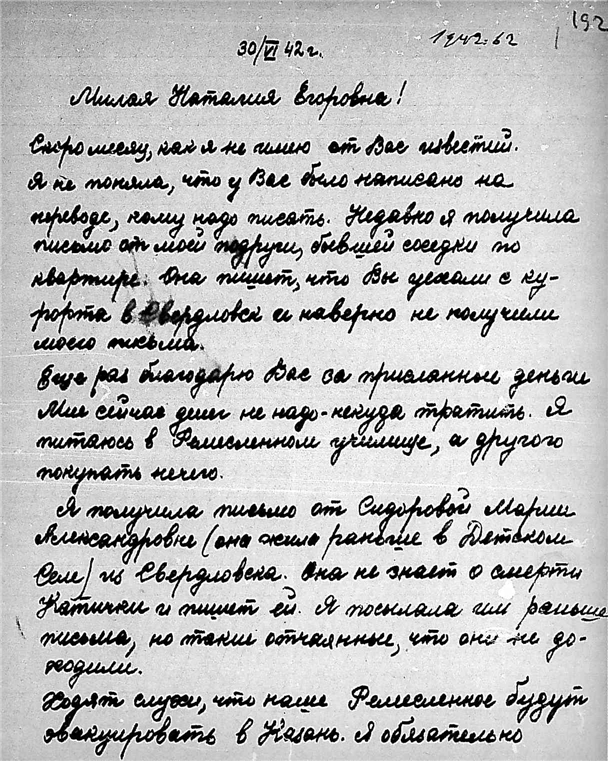 192
30/VI 42 г.
1942.62
Милая Наталия Егоровна!
Скоро месяц, как я не имею от Вас известий.
Я не поняла, что у Вас было написано на
переводе, кому надо писать. Недавно я получила
письмо от моей подруги, бывшей соседки по
квартире. Она пишет, что Вы уехали с ку-
рорта в Свердловск и наверно не получили
моего письма.
Еще раз благодарю Вас за присланные деньги
Мне сейчас денег не надо-некуда тратить. Я
питаюсь в Ремесленном училище, а другого
покупать нечего.
Я получила письмо от Сидоровой Марии
Александровне (она жила раньше в Детском
Селе) из Свердловска. Она не знает о смерти
Катички и пишет ей. Я посылала им раньше
письма, но такие отчаянные, что они не до-
ходили.
Ходят слухи, что наше Ремесленное будут
эвакуировать в Казань. Я обязательно